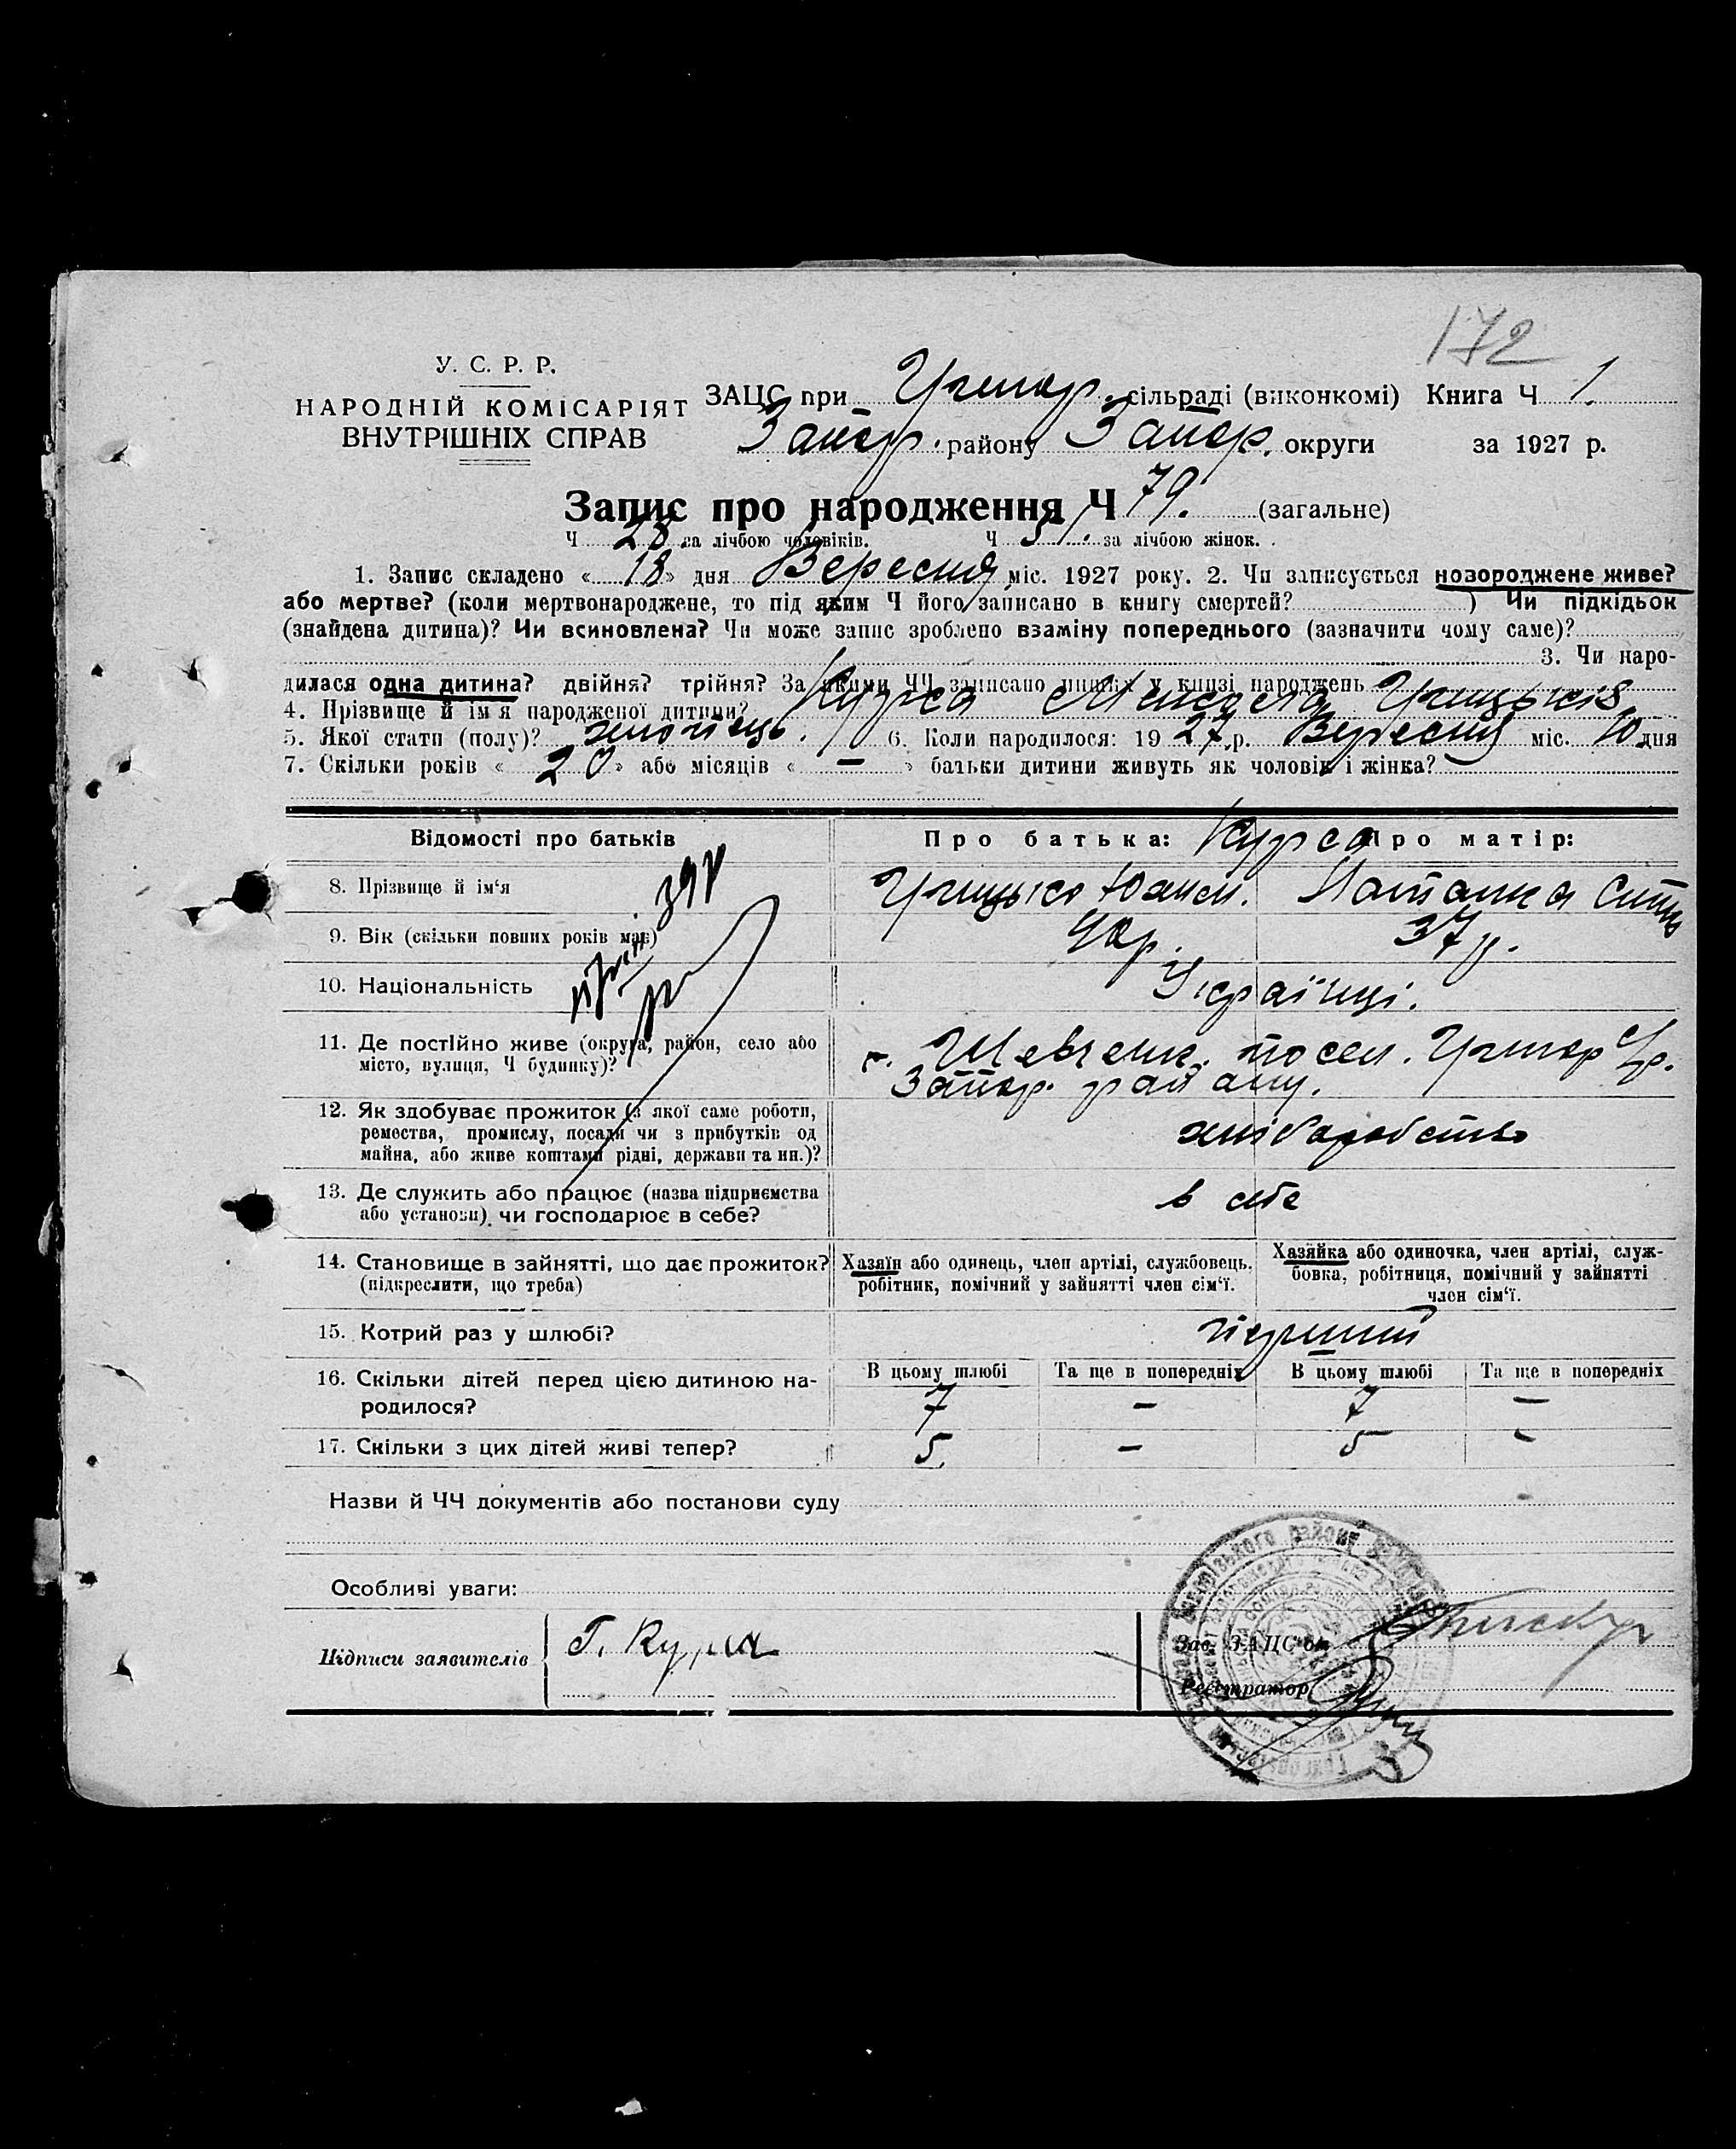 172
У. С. Р. Р.
НАРОДНІЙ КОМІСАРІЯТ
ВНУТРІШНІХ СПРАВ
ЗАЦС при Григор. сільраді (виконкомі) Книга Ч 1.
Запор. району Запор. округи за 1927 р.
Запис про народження Ч 79. (загальне)
Ч 28 за лічбою чоловіків. Ч 51. за лічбою жінок.
1. Запис складено «18» дня Вересня міс. 1927 року. 2. Чи записується новороджене живе?
або мертве? (коли мертвонароджене, то під яким Ч його записано в книгу смертей? ) Чи підкідьок
(знайдена дитина)? Чи всиновлена? Чи може запис зроблено взаміну попереднього (зазначити чому саме)?
3. Чи наро-
дилася одна дитина? двійня? трійня? За якими ЧЧ записано инших у книзі народжень
4. Прізвище й ім'я народженої дитини? Курса Микола Грицьків
5. Якої стати (полу)? хлопець. 6. Коли народилося: 1927 р. Вересня міс. 10 дня
7. Скільки років «20» або місяців «—» батьки дитини живуть як чоловік і жінка?
Відомості про батьків Про батька: Курса Про матір:
8. Прізвище й ім'я Грицько Юхим. Наталка
9. Вік (скільки повних років має) 40р. 37 р.
10. Національність Українці.
11. Де постійно живе (округа, район, село або
місто, вулиця, Ч будинку)?
Шевченк. посел. Григор С/р.
Запор. району.
12. Як здобуває прожиток (з якої саме роботи,
ремества, промислу, посади чи з прибутків од
майна, або живе коштами рідні, держави та ин.)?
хліборобство
13. Де служить або працює (назва підприємства
або установи) чи господарює в себе?
в себе
14. Становище в зайнятті, що дає прожиток?
(підкреслити, що треба)
Хазяїн або одинець, член артілі, службовець,
робітник, помічний у зайнятті член сім'ї.
Хазяйка або одиночка, член артілі, служ-
бовка, робітниця, помічний у зайнятті
член сім'ї.
15. Котрий раз у шлюбі? перший
16. Скільки дітей перед цією дитиною на-
родилося?
В цьому шлюбі Та ще в попередніх В цьому шлюбі Та ще в попередніх
7 — 7 —
17. Скільки з цих дітей живі тепер? 5 — 5 —
Назви й ЧЧ документів або постанови суду
Особливі уваги:
Підписи заявителів Г. Курса
Зав. ЗАЦС'ом
Реєстратор